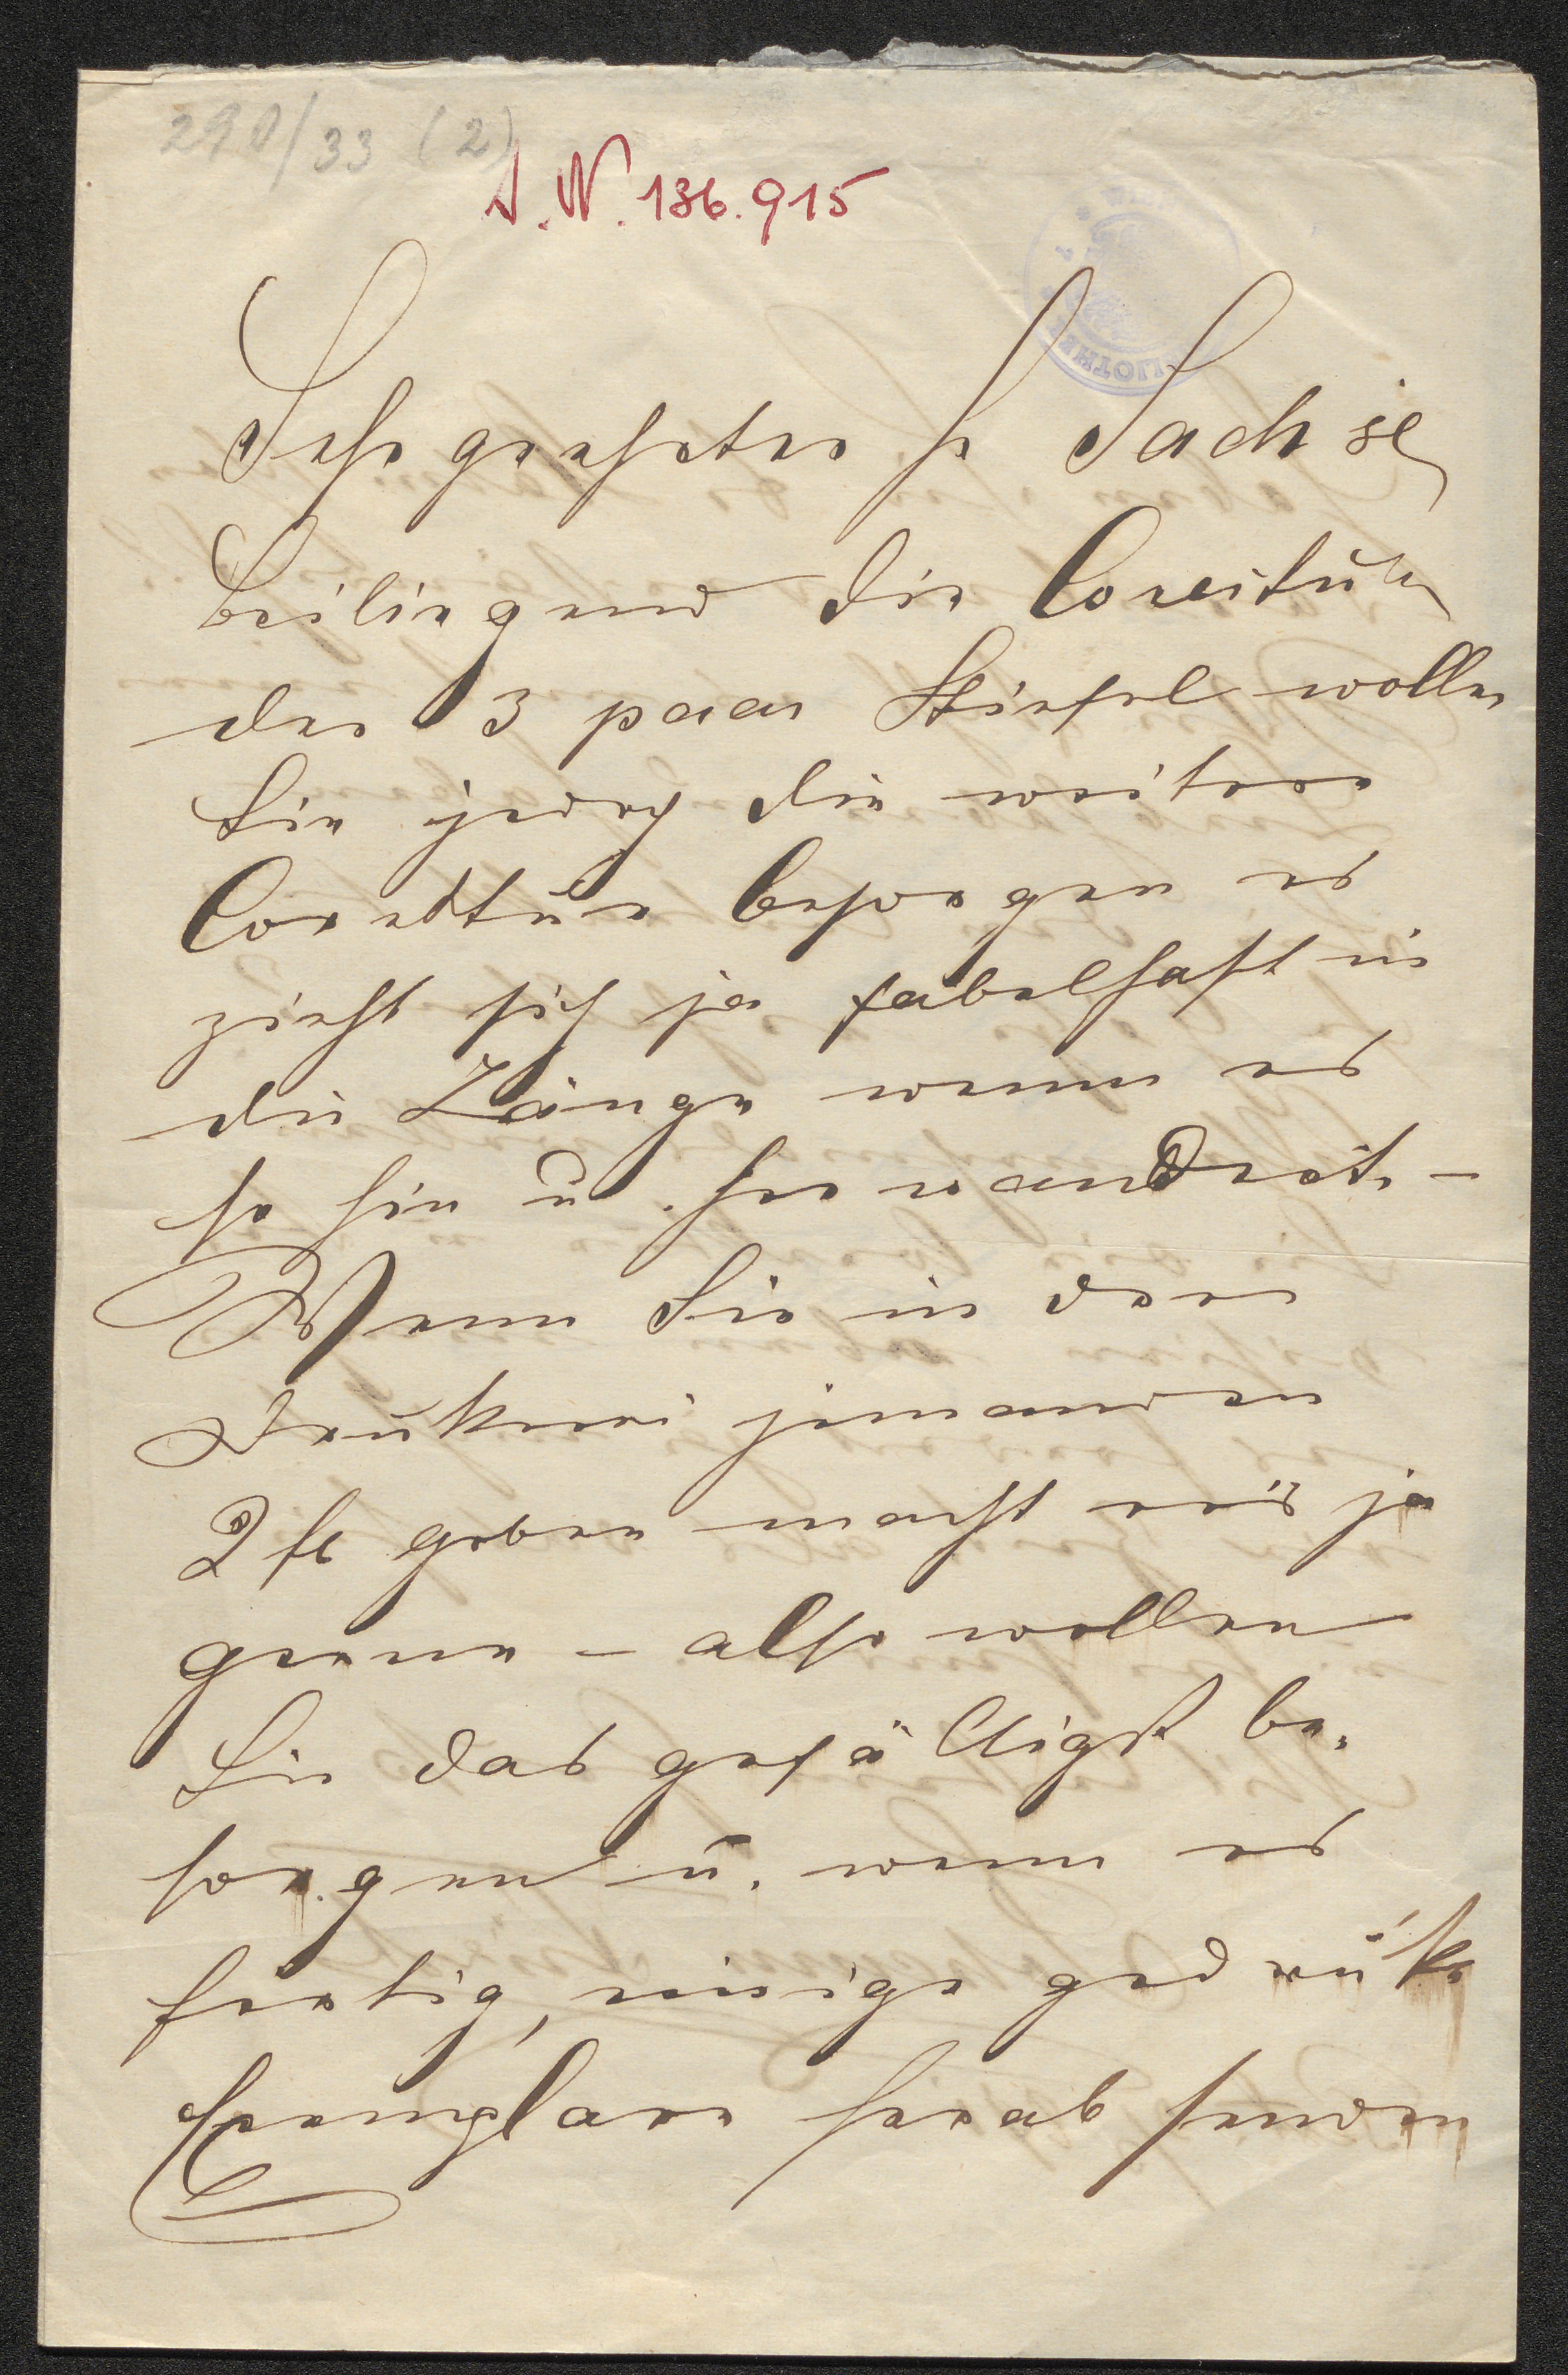 290/33 (2)
I.N. 136.915
Sehr geehrter H Sachse
Beiliegend die Correktur
der 3 paar Stiefel wollen
Sie jedoch die weitere
Correktur besorgen es
zieht sich ja fabelhaft in
die Länge wenn es
so hin u. her wandert –
Wenn Sie in der
Drukerei jemanden
2 fl geben macht er's ja
gerne – also wollen
Sie das gefälligst be-
sorgen u. wenn es
fertig, einige gedrukte
Exemplare herab senden